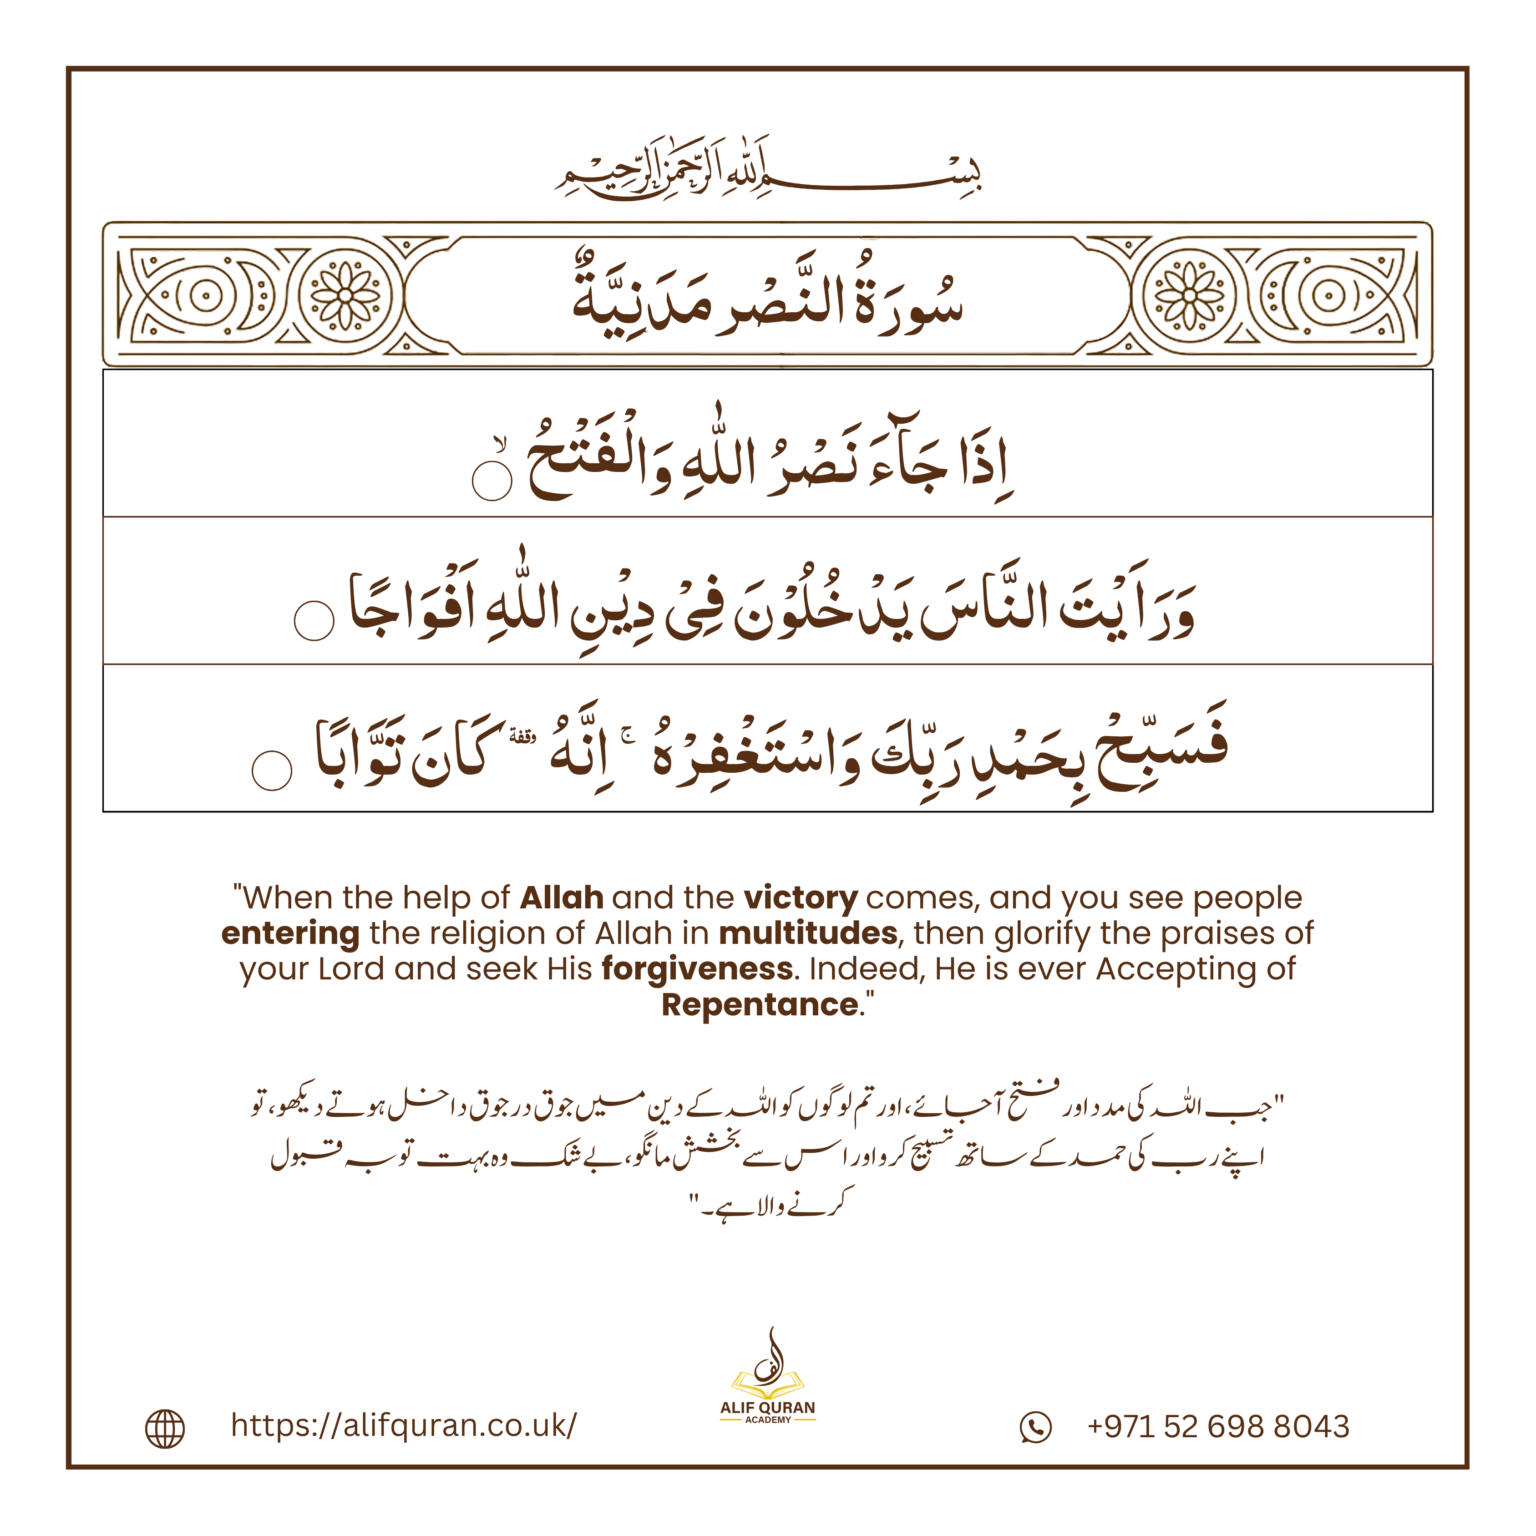 بِسْمِ اللهِ الرَّحْمٰنِ الرَّحِيْمِ
سُورَةُ النَّصْر مَدَنِيَّةٌ
اِذَا جَآءَ نَصْرُ اللّٰهِ وَالْفَتْحُ ۙ
وَرَاَيْتَ النَّاسَ يَدْخُلُوْنَ فِىْ دِيْنِ اللّٰهِ اَفْوَاجًا
فَسَبِّحْ بِحَمْدِ رَبِّكَ وَاسْتَغْفِرْهُ ۚ اِنَّهُ وقفة كَانَ تَوَّابًا
"When the help of Allah and the victory comes, and you see people
entering the religion of Allah in multitudes, then glorify the praises of
your Lord and seek His forgiveness. Indeed, He is ever Accepting of
Repentance."
"جب اللہ کی مدد اور فتح آ جائے، اور تم لوگوں کو اللہ کے دین میں جوق در جوق داخل ہوتے دیکھو، تو
اپنے رب کی حمد کے ساتھ تسبیح کرو اور اس سے بخشش مانگو، بے شک وہ بہت توبہ قبول
کرنے والا ہے۔"
الف
ALIF QURAN
ACADEMY
https://alifquran.co.uk/
+971 52 698 8043